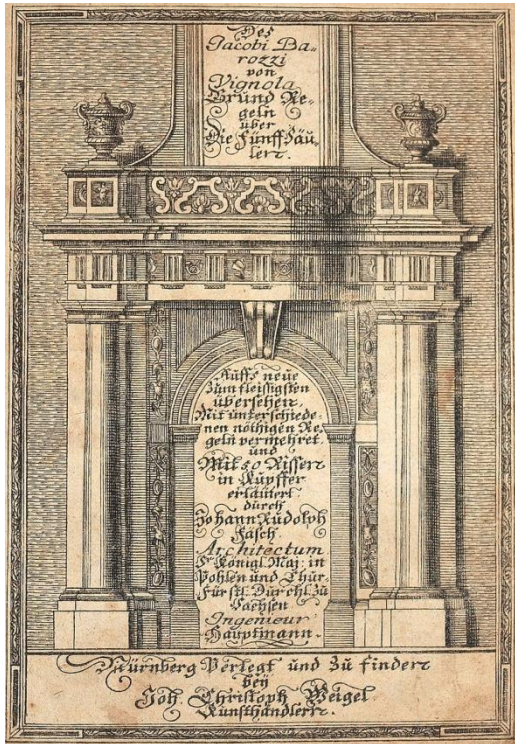 Des
Jacobi Ba-
rozzi
von
Vignola
Grund Re-
geln
über
Die Fünff Säu-
len.
Auffs neue
Zum fleissigsten
übersehen,
Mit unterschiede-
nen nöthigen Re-
geln vermehret
und
Mit 50 Rissen
in Kupffer
erläutert
durch
Johann Rudolph
Fäsch
Architectum
Sr Königl. Maj: in
Pohlen und Chur
Fürstl. Durchl. zu
Sachsen
Ingenieur
Hauptmann.
Nürnberg Verlegt und Zu finden
bey
Joh. Christoph Weigel
Kunsthändlern.